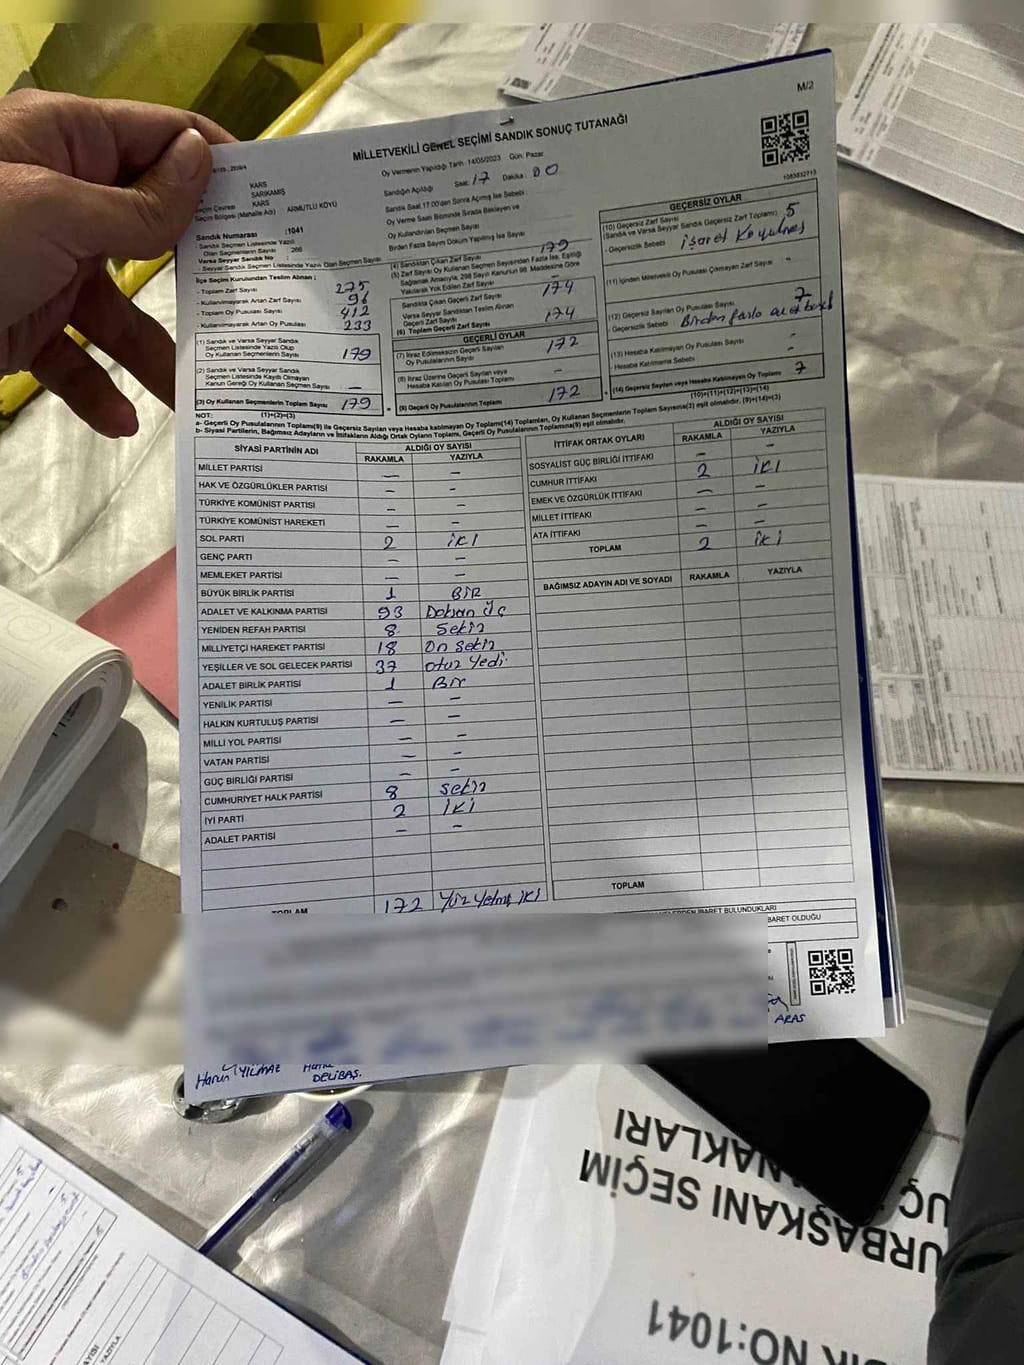 M/2
MİLLETVEKİLİ GENEL SEÇİMİ SANDIK SONUÇ TUTANAĞI
1083832713
KARS
SARIKAMIŞ
KARS
Seçim Bölgesi (Mahalle Adı) : ARMUTLU KÖYÜ
Sandık Numarası :1041
Sandık Seçmen Listesinde Yazılı
Olan Seçmenlerin Sayısı : 266
Varsa Seyyar Sandık No :
- Seyyar Sandık Seçmen Listesinde Yazılı Olan Seçmen Sayısı
Oy Vermenin Yapıldığı Tarih :14/05/2023 Gün: Pazar
Sandığın Açıldığı Saat: 17 Dakika: 00
Sandık Saat 17:00'den Sonra Açılmış İse Sebebi :
Oy Verme Saati Bitiminde Sırada Bekleyen ve
Oy Kullandırılan Seçmen Sayısı
Birden Fazla Sayım Döküm Yapılmış İse Sayısı
İlçe Seçim Kurulundan Teslim Alınan ;
- Toplam Zarf Sayısı 275
- Kullanılmayarak Artan Zarf Sayısı 96
- Toplam Oy Pusulası Sayısı 412
- Kullanılmayarak Artan Oy Pusulası 233
(1) Sandık ve Varsa Seyyar Sandık
Seçmen Listesinde Yazılı Olup
Oy Kullanan Seçmenlerin Sayısı 179
(2) Sandık ve Varsa Seyyar Sandık
Seçmen Listesinde Kayıtlı Olmayan
Kanun Gereği Oy Kullanan Seçmen Sayısı —
(3) Oy Kullanan Seçmenlerin Toplam Sayısı 179
(1)+(2)=(3)
(4) Sandıktan Çıkan Zarf Sayısı 179
(5) Zarf Sayısı Oy Kullanan Seçmen Sayısından Fazla İse, Eşitliği
Sağlamak Amacıyla, 298 Sayılı Kanunun 98. Maddesine Göre
Yakılarak Yok Edilen Zarf Sayısı —
Sandıkta Çıkan Geçerli Zarf Sayısı 174
Varsa Seyyar Sandıktan Teslim Alınan
Geçerli Zarf Sayısı
(6) Toplam Geçerli Zarf Sayısı 174
GEÇERLİ OYLAR
(7) İtiraz Edilmeksizin Geçerli Sayılan
Oy Pusulalarının Sayısı 172
(8) İtiraz Üzerine Geçerli Sayılan veya
Hesaba Katılan Oy Pusulası Toplamı –
(9) Geçerli Oy Pusulalarının Toplamı 172
GEÇERSİZ OYLAR
(10) Geçersiz Zarf Sayısı
(Sandık ve Varsa Seyyar Sandık Geçersiz Zarf Toplamı) 5
- Geçersizlik Sebebi : işaret
(11) İçinden Milletvekili Oy Pusulası Çıkmayan Zarf Sayısı : -
(12) Geçersiz Sayılan Oy Pusulası Sayısı : 7
- Geçersizlik Sebebi : Birden fazla
(13) Hesaba Katılmayan Oy Pusulası Sayısı : -
- Hesaba Katılmama Sebebi : -
(14) Geçersiz Sayılan veya Hesaba Katılmayan Oy Toplamı 7
(10)+(11)+(12)+(13)=(14)
NOT:
a- Geçerli Oy Pusulalarının Toplamı(9) ile Geçersiz Sayılan veya Hesaba Katılmayan Oy Toplamı(14) Toplamları, Oy Kullanan Seçmenlerin Toplam Sayısına(3) eşit olmalıdır. (9)+(14)=(3)
b- Siyasi Partilerin, Bağımsız Adayların ve İttifakların Aldığı Ortak Oyların Toplamı, Geçerli Oy Pusulalarının Toplamına(9) eşit olmalıdır.
SİYASİ PARTİNİN ADI ALDIĞI OY SAYISI
RAKAMLA YAZIYLA
MİLLET PARTİSİ — —
HAK VE ÖZGÜRLÜKLER PARTİSİ — —
TÜRKİYE KOMÜNİST PARTİSİ — —
TÜRKİYE KOMÜNİST HAREKETİ — —
SOL PARTİ 2 iki
GENÇ PARTİ — —
MEMLEKET PARTİSİ — —
BÜYÜK BİRLİK PARTİSİ 1 BİR
ADALET VE KALKINMA PARTİSİ 93 Doksan Üç
YENİDEN REFAH PARTİSİ 8 Sekiz
MİLLİYETÇİ HAREKET PARTİSİ 18 On sekiz
YEŞİLLER VE SOL GELECEK PARTİSİ 37 otuz Yedi
ADALET BİRLİK PARTİSİ 1 Bir
YENİLİK PARTİSİ — —
HALKIN KURTULUŞ PARTİSİ — —
MİLLİ YOL PARTİSİ — —
VATAN PARTİSİ — —
GÜÇ BİRLİĞİ PARTİSİ — —
CUMHURİYET HALK PARTİSİ 8 sekiz
İYİ PARTİ 2 iki
ADALET PARTİSİ — —
TOPLAM 172 Yüz Yetmiş iki
İTTİFAK ORTAK OYLARI ALDIĞI OY SAYISI
RAKAMLA YAZIYLA
SOSYALİST GÜÇ BİRLİĞİ İTTİFAKI — —
CUMHUR İTTİFAKI 2 iki
EMEK VE ÖZGÜRLÜK İTTİFAKI — —
MİLLET İTTİFAKI — —
ATA İTTİFAKI — —
TOPLAM 2 iki
BAĞIMSIZ ADAYIN ADI VE SOYADI RAKAMLA YAZIYLA
TOPLAM
İBARET BULUNDUKLARI
İBARET OLDUĞU
ARAS
Harun YILMAZ
DELİBAŞ.
URBAŞKANI SEÇİM
NAKLARI
NO:1041